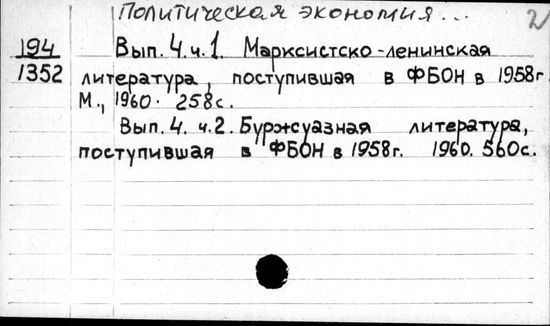 Политическая экономия...
2
194
1352
Вып. 4. ч. 1. Марксистско-ленинская
литература, поступившая в ФБОН в 1958г.
М., 1960. 258с.
Вып. 4. ч. 2. Буржуазная литература,
поступившая в ФБОН в 1958г. 1960. 560с.